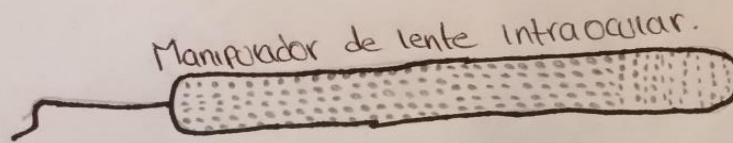 Manipulador de lente intraocular.